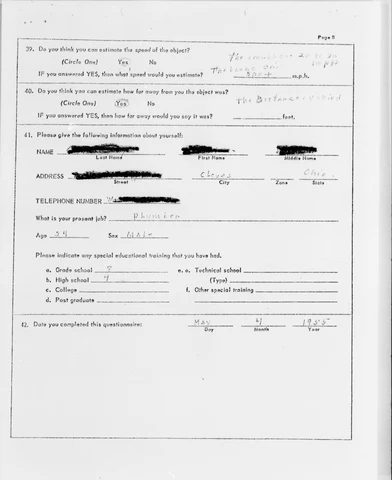 Page 5
39. Do you think you can estimate the speed of the object?
(Circle One) Yes No
IF you answered YES, then what speed would you estimate? m.p.h.
40. Do you think you can estimate how far away from you the object was?
(Circle One) Yes No
The Distance
IF you answered YES, then how far away would you say it was? feet.
41. Please give the following information about yourself:
NAME
Last Name First Name Middle Name
ADDRESS Cleves Ohio
Street City Zone State
TELEPHONE NUMBER
What is your present job? Plumber
Age Sex Male
Please indicate any special educational training that you have had.
a. Grade school 8 e. a. Technical school
b. High school (Type)
c. College f. Other special training
d. Post graduate
42. Date you completed this questionnaire: May 4 1955
Day Month Year